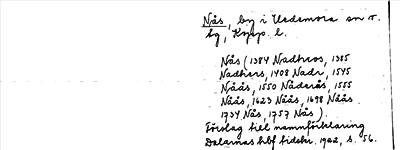 Nås, by i Uedemora sn o.
bg, Kopp. l.
Nås (1384 Nadhros, 1385
Nadhars, 1408 Nadr, 1545
Nåås, 1550 Nådarås, 1555
Nåås, 1623 Nåås, 1698 Nåås
1734 Nås, 1757 Nås).
Förslag till namnförklaring
Dalarnas hbf tidskr. 1962, s. 56.